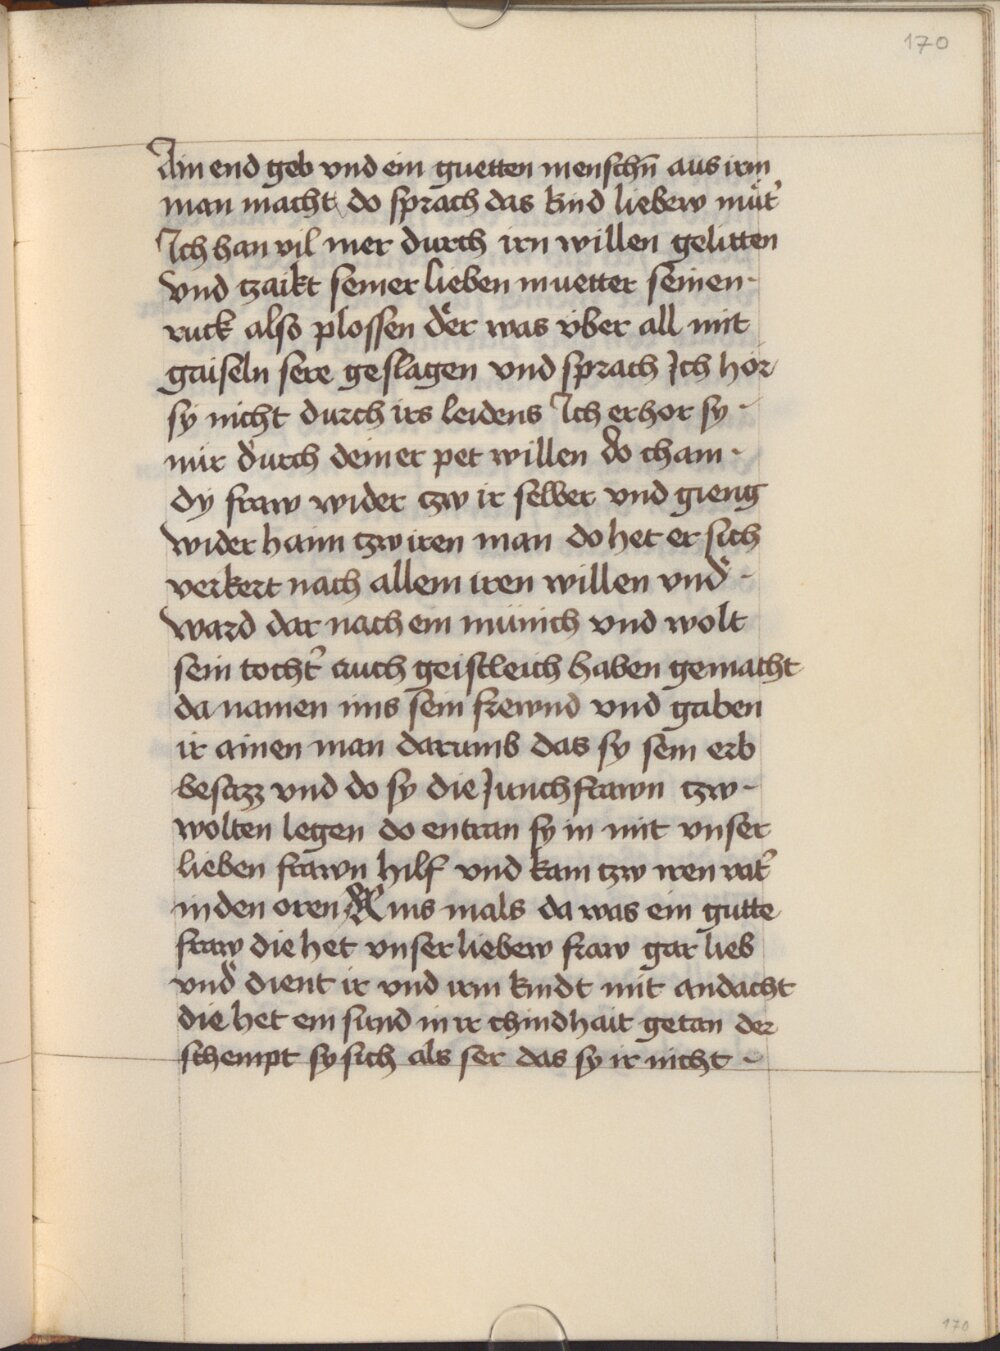 170
Ain end geb vnd ein guetten menschn̄ aus irm
man macht do sprach das kind liebew mu̇t̉
Ich han vil mer durch irn willen gelitten
vnd tzaikt seiner lieben muetter seinen
ruck also plossen der was vber all mit
gaiseln sere geslagen vnd sprach Ich hor
sy nicht durch irs leidens Ich erhor sy
nür durch deiner pet willen do cham
dy fraw wider tzw ir selber vnd gieng
wider haim tzw iren man do het er sich
verkert nach allem iren willen vnd
ward dar nach ein münich vnd wolt
sein tocht̉ auch geistleich haben gemacht
da namen ims sein frewnd vnd gaben
ir ainen man darumb das sy sein erb
besezz vnd do sy die Junchfrawn tzw
wolten legen do entran sy in mit vnser
lieben frawn hilf vnd kam tzw iren vat̉
in den oren Ains mals da was ein gutte
fraw die het vnser liebew fraw gar lieb
vnd dient ir vnd irm kindt mit andacht
die het ein sund in ir chindhait getan der
schempt sy sich als ser das sy ir nicht
170